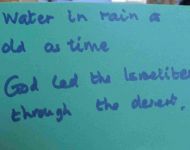 Water in rain as
old as time
God led the Israelites
through the desert.